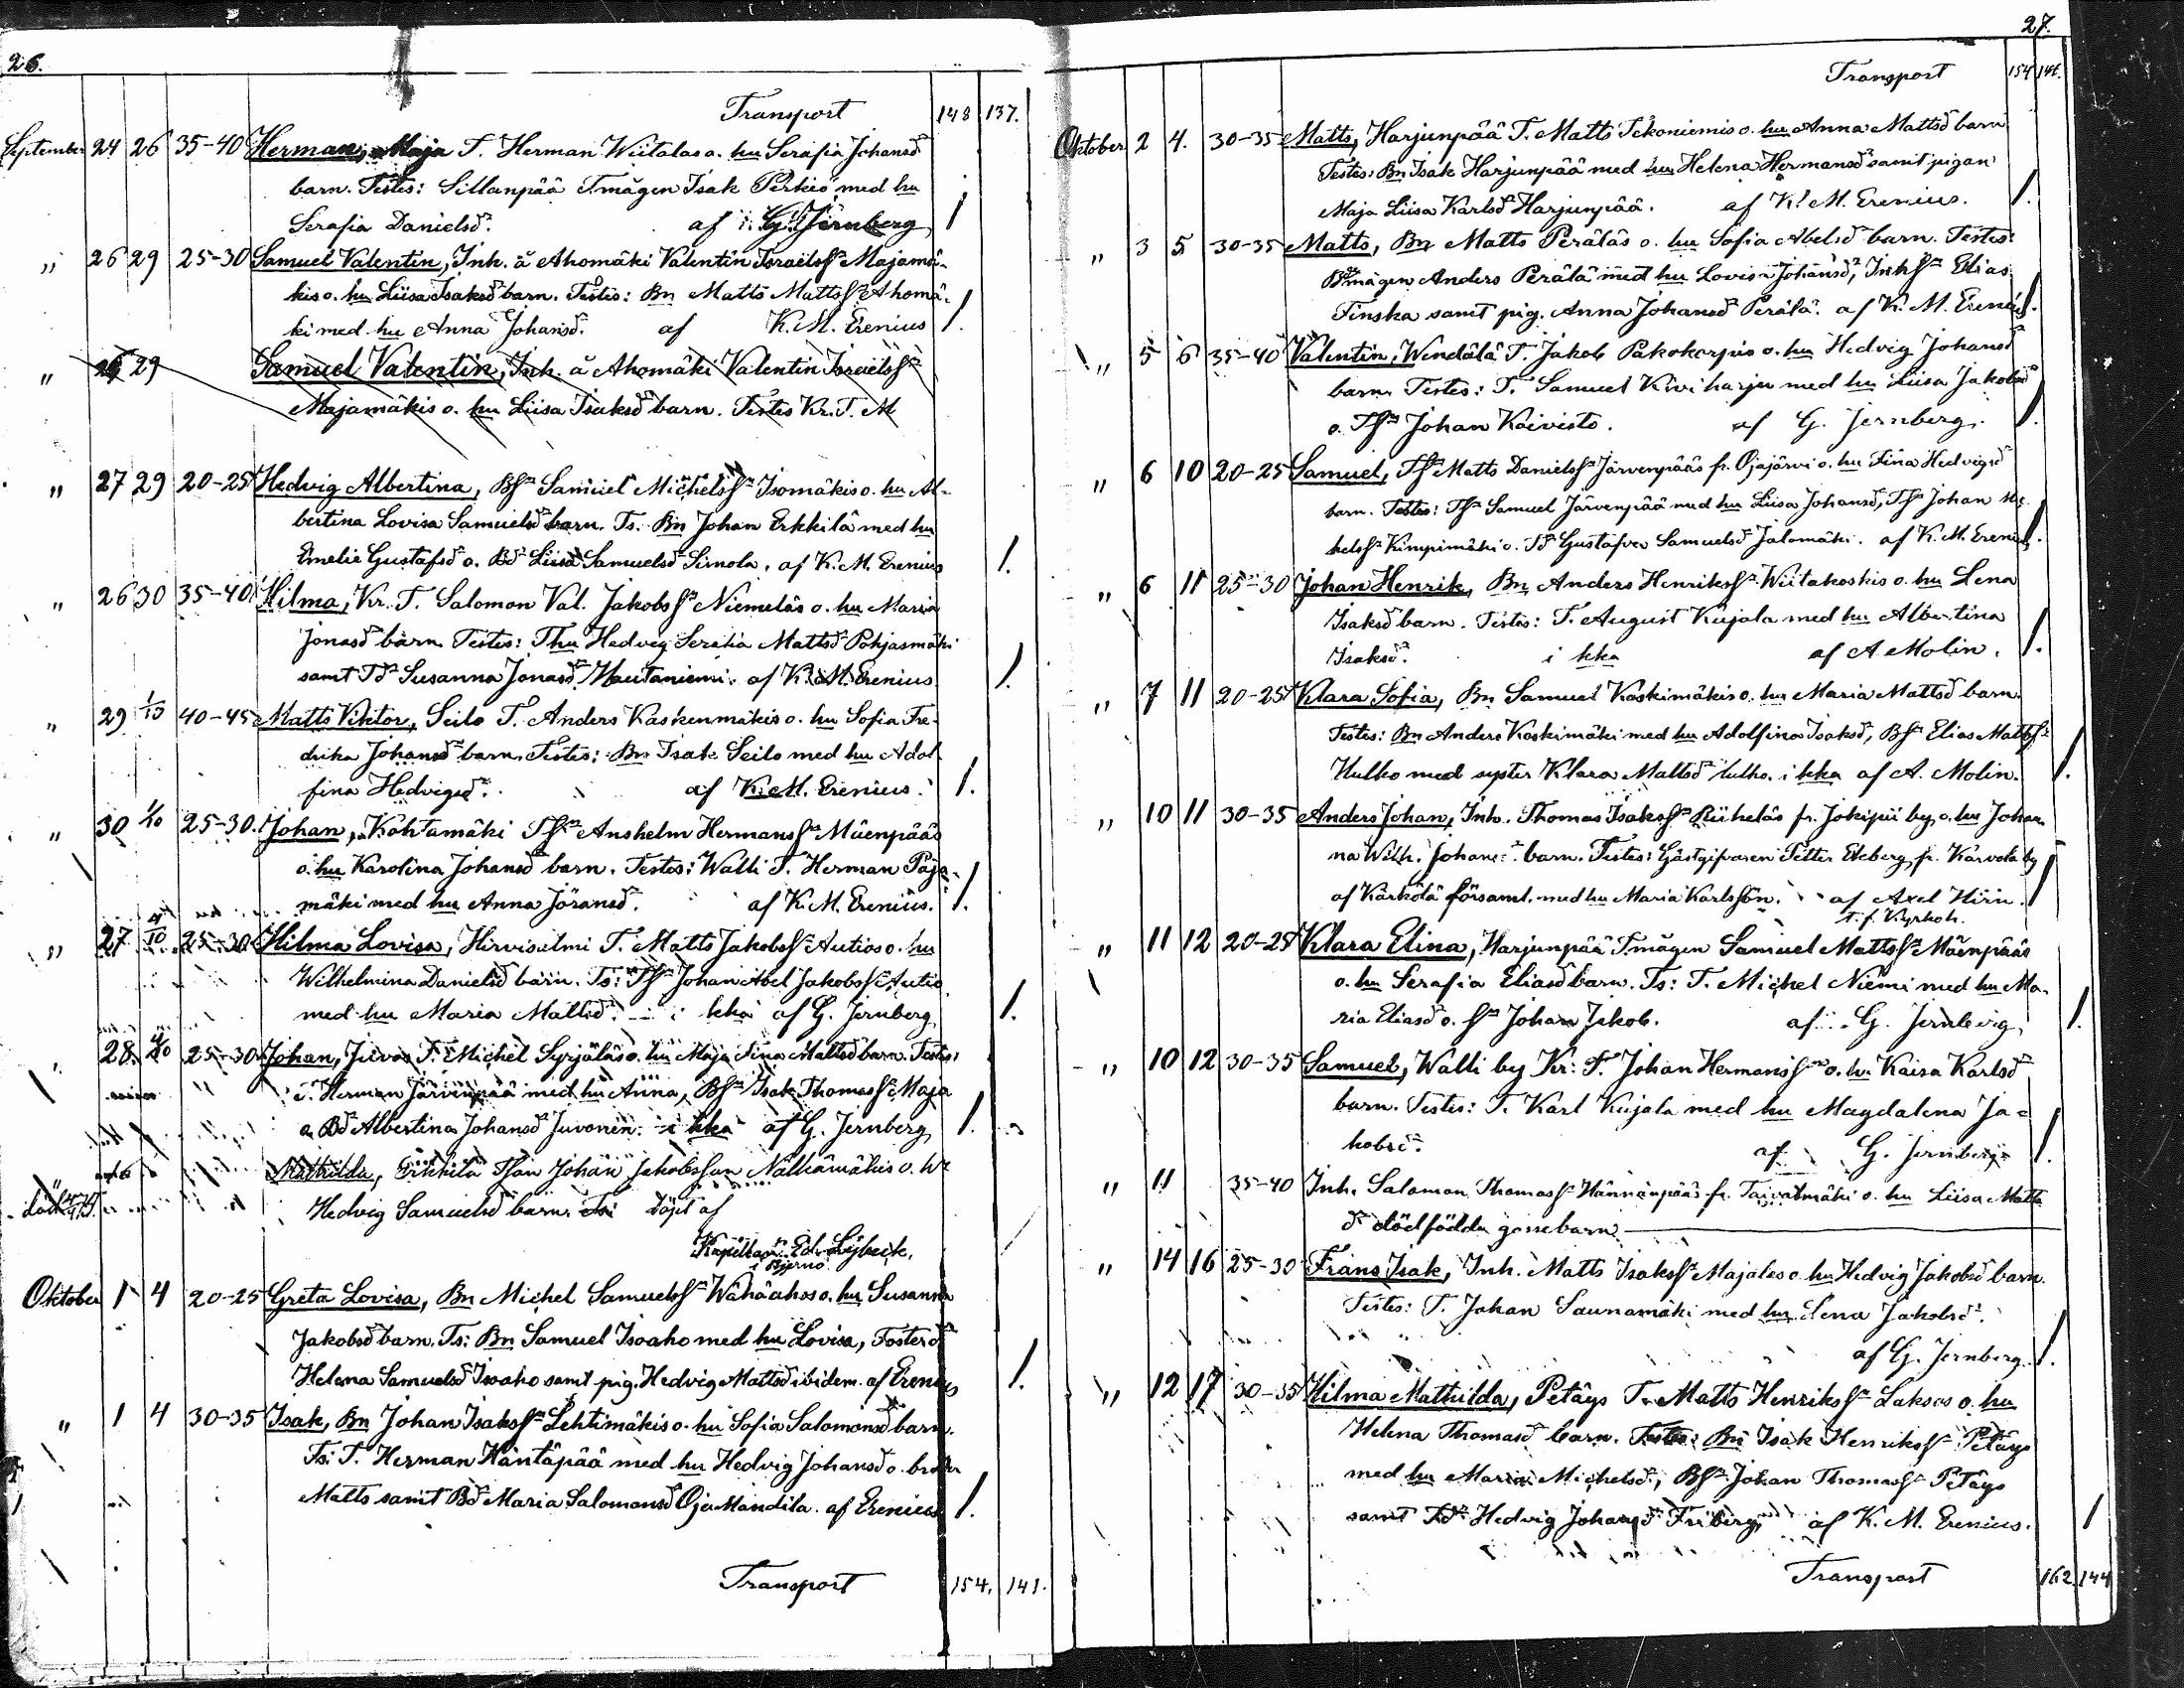 26.
Transport 148 137.
September 24 26 35-40 Herman, Maja T. Herman Wiitalas o. hu Serafia Johansdr
barn. Testes: Sillanpää T.mågen Isak Perkiö med hu
Serafia Danielsdr. af G. Jernberg /
" 26 29 25-30 Samuel Valentin, Inh. å Ahomäki Valentin Israelssn Majamä-
kis o. hu Liisa Isaksdr barn. Testes: Bn Matts Mattssn Ahomä-
ki med hu Anna Johansdr. af K. M. Erenius /.
" 26 29 Samuel Valentin, Inh. å Ahomäki Valentin Israelssn
Majamäkis o. hu Liisa Isaksdr barn. Testes Kr. T. M
" 27 29 20-25 Hedvig Albertina, Bsn Samuel Michelssn Isomäkis o. hu Al-
bertina Lovisa Samuelsdr barn. Ts. Bn Johan Erkkilä med hu
Emelie Gustafsdr o. Bdr Liisa Samuelsdr Simola. af K. M. Erenius /.
" 26 30 35-40 Hilma, Kr. T. Salomon Val. Jakobssn Niemeläs o. hu Maria
Jonasdr barn Testes: Thu Hedvig Serafia Mattsdr Pohjasmäki
samt Tdr Susanna Jonasdr Hautaniemi. af K. M. Erenius /.
" 29 1/10 40-45 Matts Viktor, Seilo T. Anders Kaskenmäkis o. hu Sofia Fre-
drika Johansdr barn. Testes: Bn Isak Seilo med hu Adol-
fina Hedvigsdr. af K. M. Erenius. /.
" 30 1/10 25-30. Johan, Kohtamäki Tssn Anshelm Hermanssn Mäenpääs
o. hu Karolina Johansdr barn. Testes: Walli T. Herman Paja-
mäki med hu Anna Jöransdr. af K. M. Erenius. /.
" 27 4/10 25-30 Hilma Lovisa, Hirvisalmi T. Matts Jakobssn Autios o. hu
Wilhelmina Danielsdr barn. Ts: Tsn Johan Abel Jakobssn Autio
med hu Maria Mattsdr. i kka af G. Jernberg /.
" 28 4/10 25-30 Johan, Juvas T. Michel Syrjäläs o. hu Maja Tina Mattsdr barn. Testes:
T. Herman Järvenpää med hu Anna, Bsn Isak Thomassn Maja
o. Bdr Albertina Johansdr Juvonen. i kka af G. Jernberg /.
Mathilda, Erkkilä Tsan Johan Jakobsson Nälkämäkis o. hr
Hedvig Samuelsdr barn. Döpt af
Kapellan Ed. Lybeck,
i Bjernå
Oktober 1 4 20-25 Greta Lovisa, Bn Michel Samuelssn Wähäahos o. hu Susanna
Jakobsdr barn. Ts: Bn Samuel Isoaho med hu Lovisa, Fosterdr
Helena Samuelsdr Isoaho samt pig. Hedvig Mattsdr ibidem. af Erenius /.
" 1 4 30-35 Isak, Bn Johan Isakssn Lehtimäkis o. hu Sofia Salomonsdr barn.
Ts: T. Herman Häntäpää med hu Hedvig Johansdr o. broder
Matts samt Bdr Maria Salomonsdr Oja Mandila. af Erenius /.
Transport 154. 141.
27.
Transport 154 141.
Oktober 2 4. 30-35 Matts, Harjunpää T. Matts Tekoniemis o. hu Anna Mattsdr barn
Testes: Bn Isak Harjunpää med hu Helena Hermansdr samt pigan
Maja Liisa Karlsdr Harjunpää. af K. M. Erenius. /.
" 3 5 30-35 Matts, Bn Matts Peräläs o. hu Sofia Abelsdr barn. Testes:
Bmågen Anders Perälä med hu Lovisa Johansdr, Inhsn Elias
Finska samt pig. Anna Johansdr Perälä. af K. M. Erenius /.
" 5 6 35-40 Valentin, Wendälä T. Jakob Pakokorpis o. hu Hedvig Johansdr
barn. Testes: T. Samuel Kiviharju med hu Liisa Jakobsdr
o. Tsn Johan Koivisto. af G. Jernberg. /.
" 6 10 20-25 Samuel, Tsn Matts Danielssn Järvenpääs fr. Ojajärvi o. hu Fina Hedvigsdr
barn. Testes: Tsn Samuel Järvenpää med hu Liisa Johansdr, Tsn Johan Mi-
helssn Kimpimäki o. Tdr Gustafva Samuelsdr Jalomäki. af K. M. Erenius /.
" 6 11 25-30 Johan Henrik, Bn Anders Henrikssn Wiitakoskis o. hu Lena
Isaksdr barn. Testes: T. August Kujala med hu Albertina
Isaksdr. i kka af A Molin. /.
" 7 11 20-25 Klara Sofia, Bn Samuel Koskimäkis o. hu Maria Mattsdr barn.
Testes: Bn Anders Koskimäki med hu Adolfina Isaksdr, Bsn Elias Mattssn
Hulko med syster Klara Mattsdr Hulko. i kka af A. Molin. /.
" 10 11 30-35 Anders Johan, Inh. Thomas Isakssn Riiheläs fr. Jokipii by o. hu Johan-
na Wilh. Johansdr. barn. Testes: Gästgifvaren Petter Ekberg fr. Karvola by
af Kärkölä församl. med hu Maria Karlsson. af Axel Hirn. /
t. f. Kyrkoh.
" 11 12 20-25 Klara Elina, Harjunpää T.mågen Samuel Mattssn Mäenpääs
o. hu Serafia Eliasdr barn. Ts: T. Michel Niemi med hu Ma-
ria Eliasdr o. sn Johan Jakob. af G. Jernberg /.
" 10 12 30-35 Samuel, Walli by Kr. T. Johan Hermanssn o. hu Kaisa Karlsdr
barn. Testes: T. Karl Kujala med hu Magdalena Ja-
kobsdr. af G. Jernberg /.
" 11 35-40 Inh. Salomon Thomassn Hännänpääs fr. Taivalmäki o. hu Liisa Matts
dr dödfödda gossebarn
" 14 16 25-30 Frans Isak, Inh. Matts Isakssn Majalas o. hu Hedvig Jakobsdr barn.
Testes: T. Johan Saunamäki med hu Lena Jakobsdr.
af G. Jernberg. /.
" 12 17 30-35 Hilma Mathilda, Petäys T. Matts Henrikssn Laksos o. hu
Helena Thomasdr barn. Testes: Bn Isak Henrikssn Petäys
med hu Maria Michelsdr, Bsn Johan Thomassn Petäys
samt Tdr Hedvig Johansdr Friberg af K. M. Erenius. /
Transport 162 144